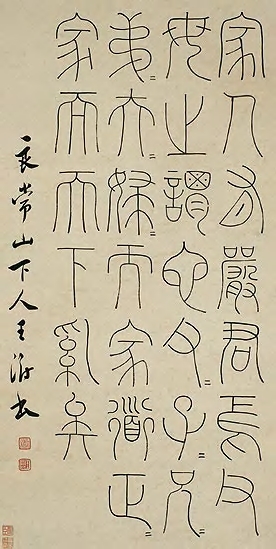 家人有嚴君焉父
母之謂也父〻子〻兄〻
弟〻夫〻婦〻而家道正〻
家而天下矣
良常山下人王澍書